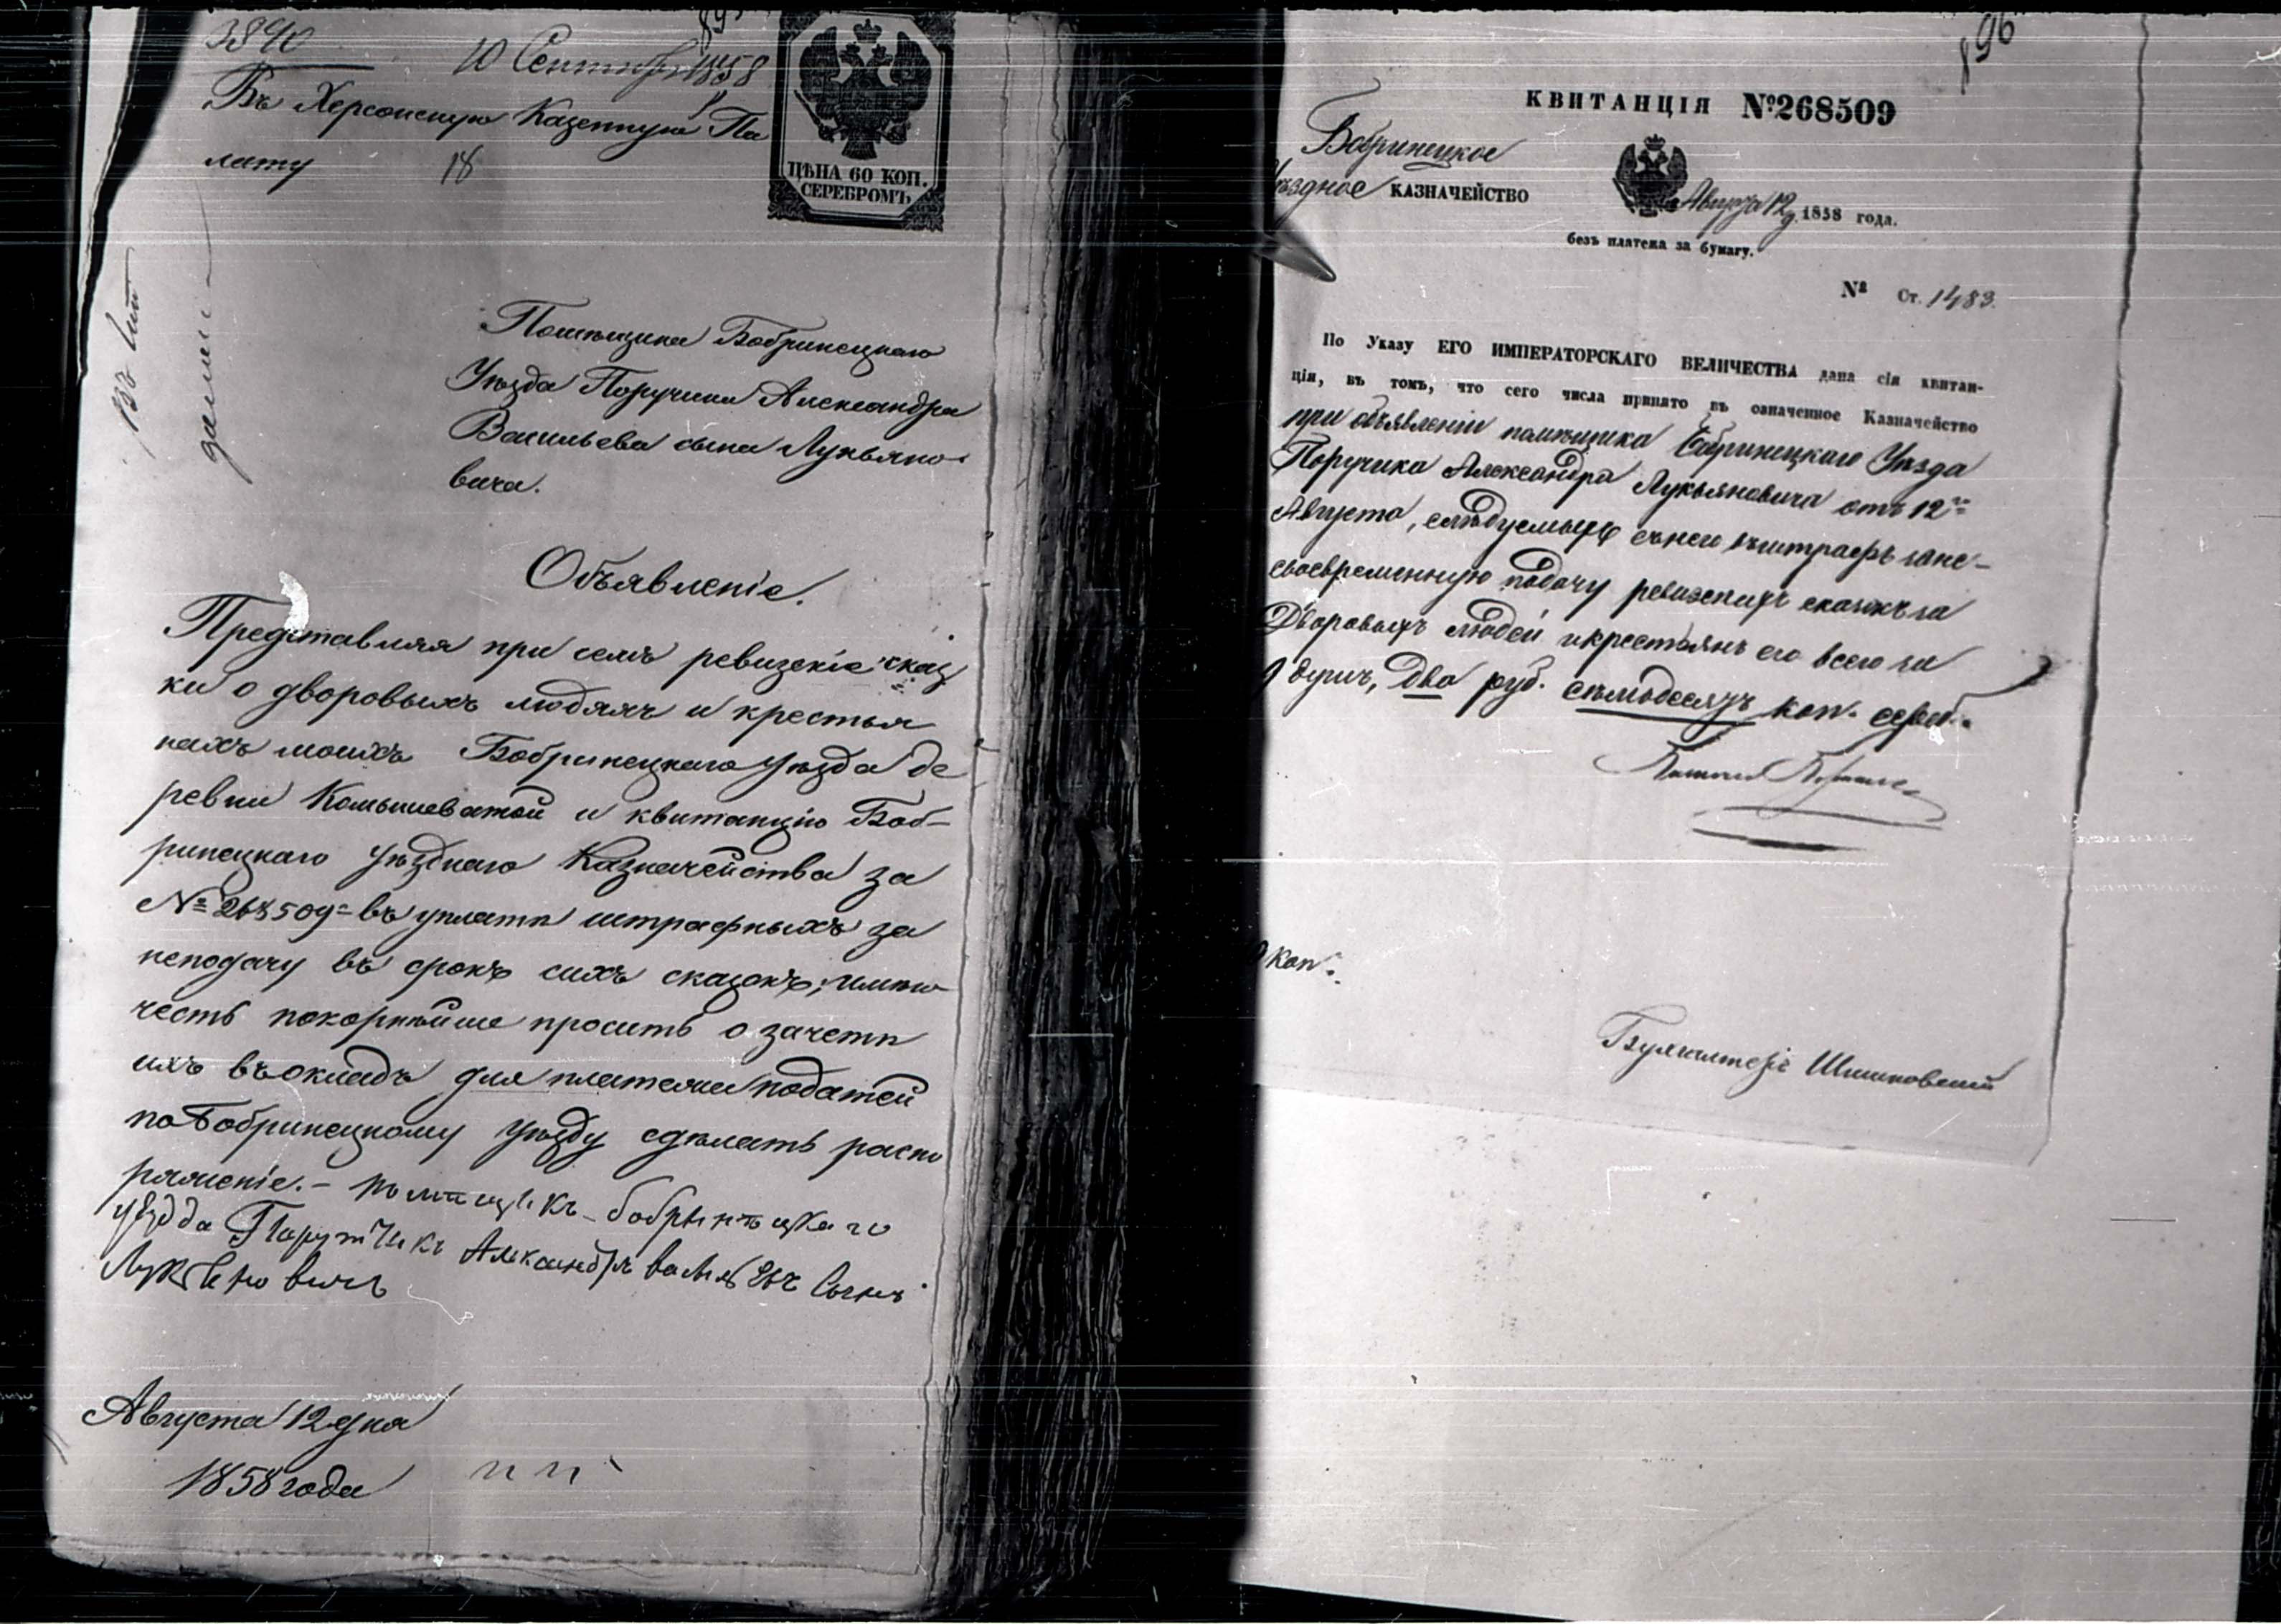 3840
10 Сентября 1858
895
Въ Херсонскую Казенную Па
лату
18
ЦѢНА 60 КОП.
СЕРЕБРОМЪ
Помѣщика Бобринецкаго
Уѣзда Поручика Александра
Васильева сына Лукьяно-
вича.
Объявленіе.
Представляя при семъ ревизскіе сказ
ки о дворовыхъ людяхъ и крестья
нахъ моихъ Бобринецкаго Уѣзда де
ревни Комышеватой и квитанцію Боб-
ринецкаго Уѣзднаго Казначейства за
№ 268509 въ уплатѣ штрафныхъ за
неподачу въ срокъ сихъ сказокъ; имѣю
честь покорнѣйше просить о зачетѣ
ихъ въ окладъ для платежа податей
по Бобринецкому Уѣзду сдѣлать распо
ряженіе. - помѣщикъ бобрынѣцкаго
уѣзда Порутчикъ Александръ васильевъ Сынъ
Лукьяновичъ
Августа 12 дня
1858 года
896
КВИТАНЦІЯ №268509
Бобринецкое
Уѣздное КАЗНАЧЕЙСТВО
Августа 12 д. 1858 года.
безъ платежа за бумагу.
№ Ст. 1483.
По Указу ЕГО ИМПЕРАТОРСКАГО ВЕЛИЧЕСТВА дана сія квитан-
ція, въ томъ, что сего числа принято въ означенное Казначейство
при объявленіи помѣщика Бобринецкаго Уѣзда
Поручика Александра Лукьяновича отъ 12го
Августа, слѣдуемыхъ съ него въ штрафъ за не-
своевременную подачу ревизскихъ сказокъ за
Дворовыхъ людей и крестьянъ его всего за
9 душъ, два руб. семьдесятъ коп. сереб.
коп.
Бухгалтеръ Шишковскій